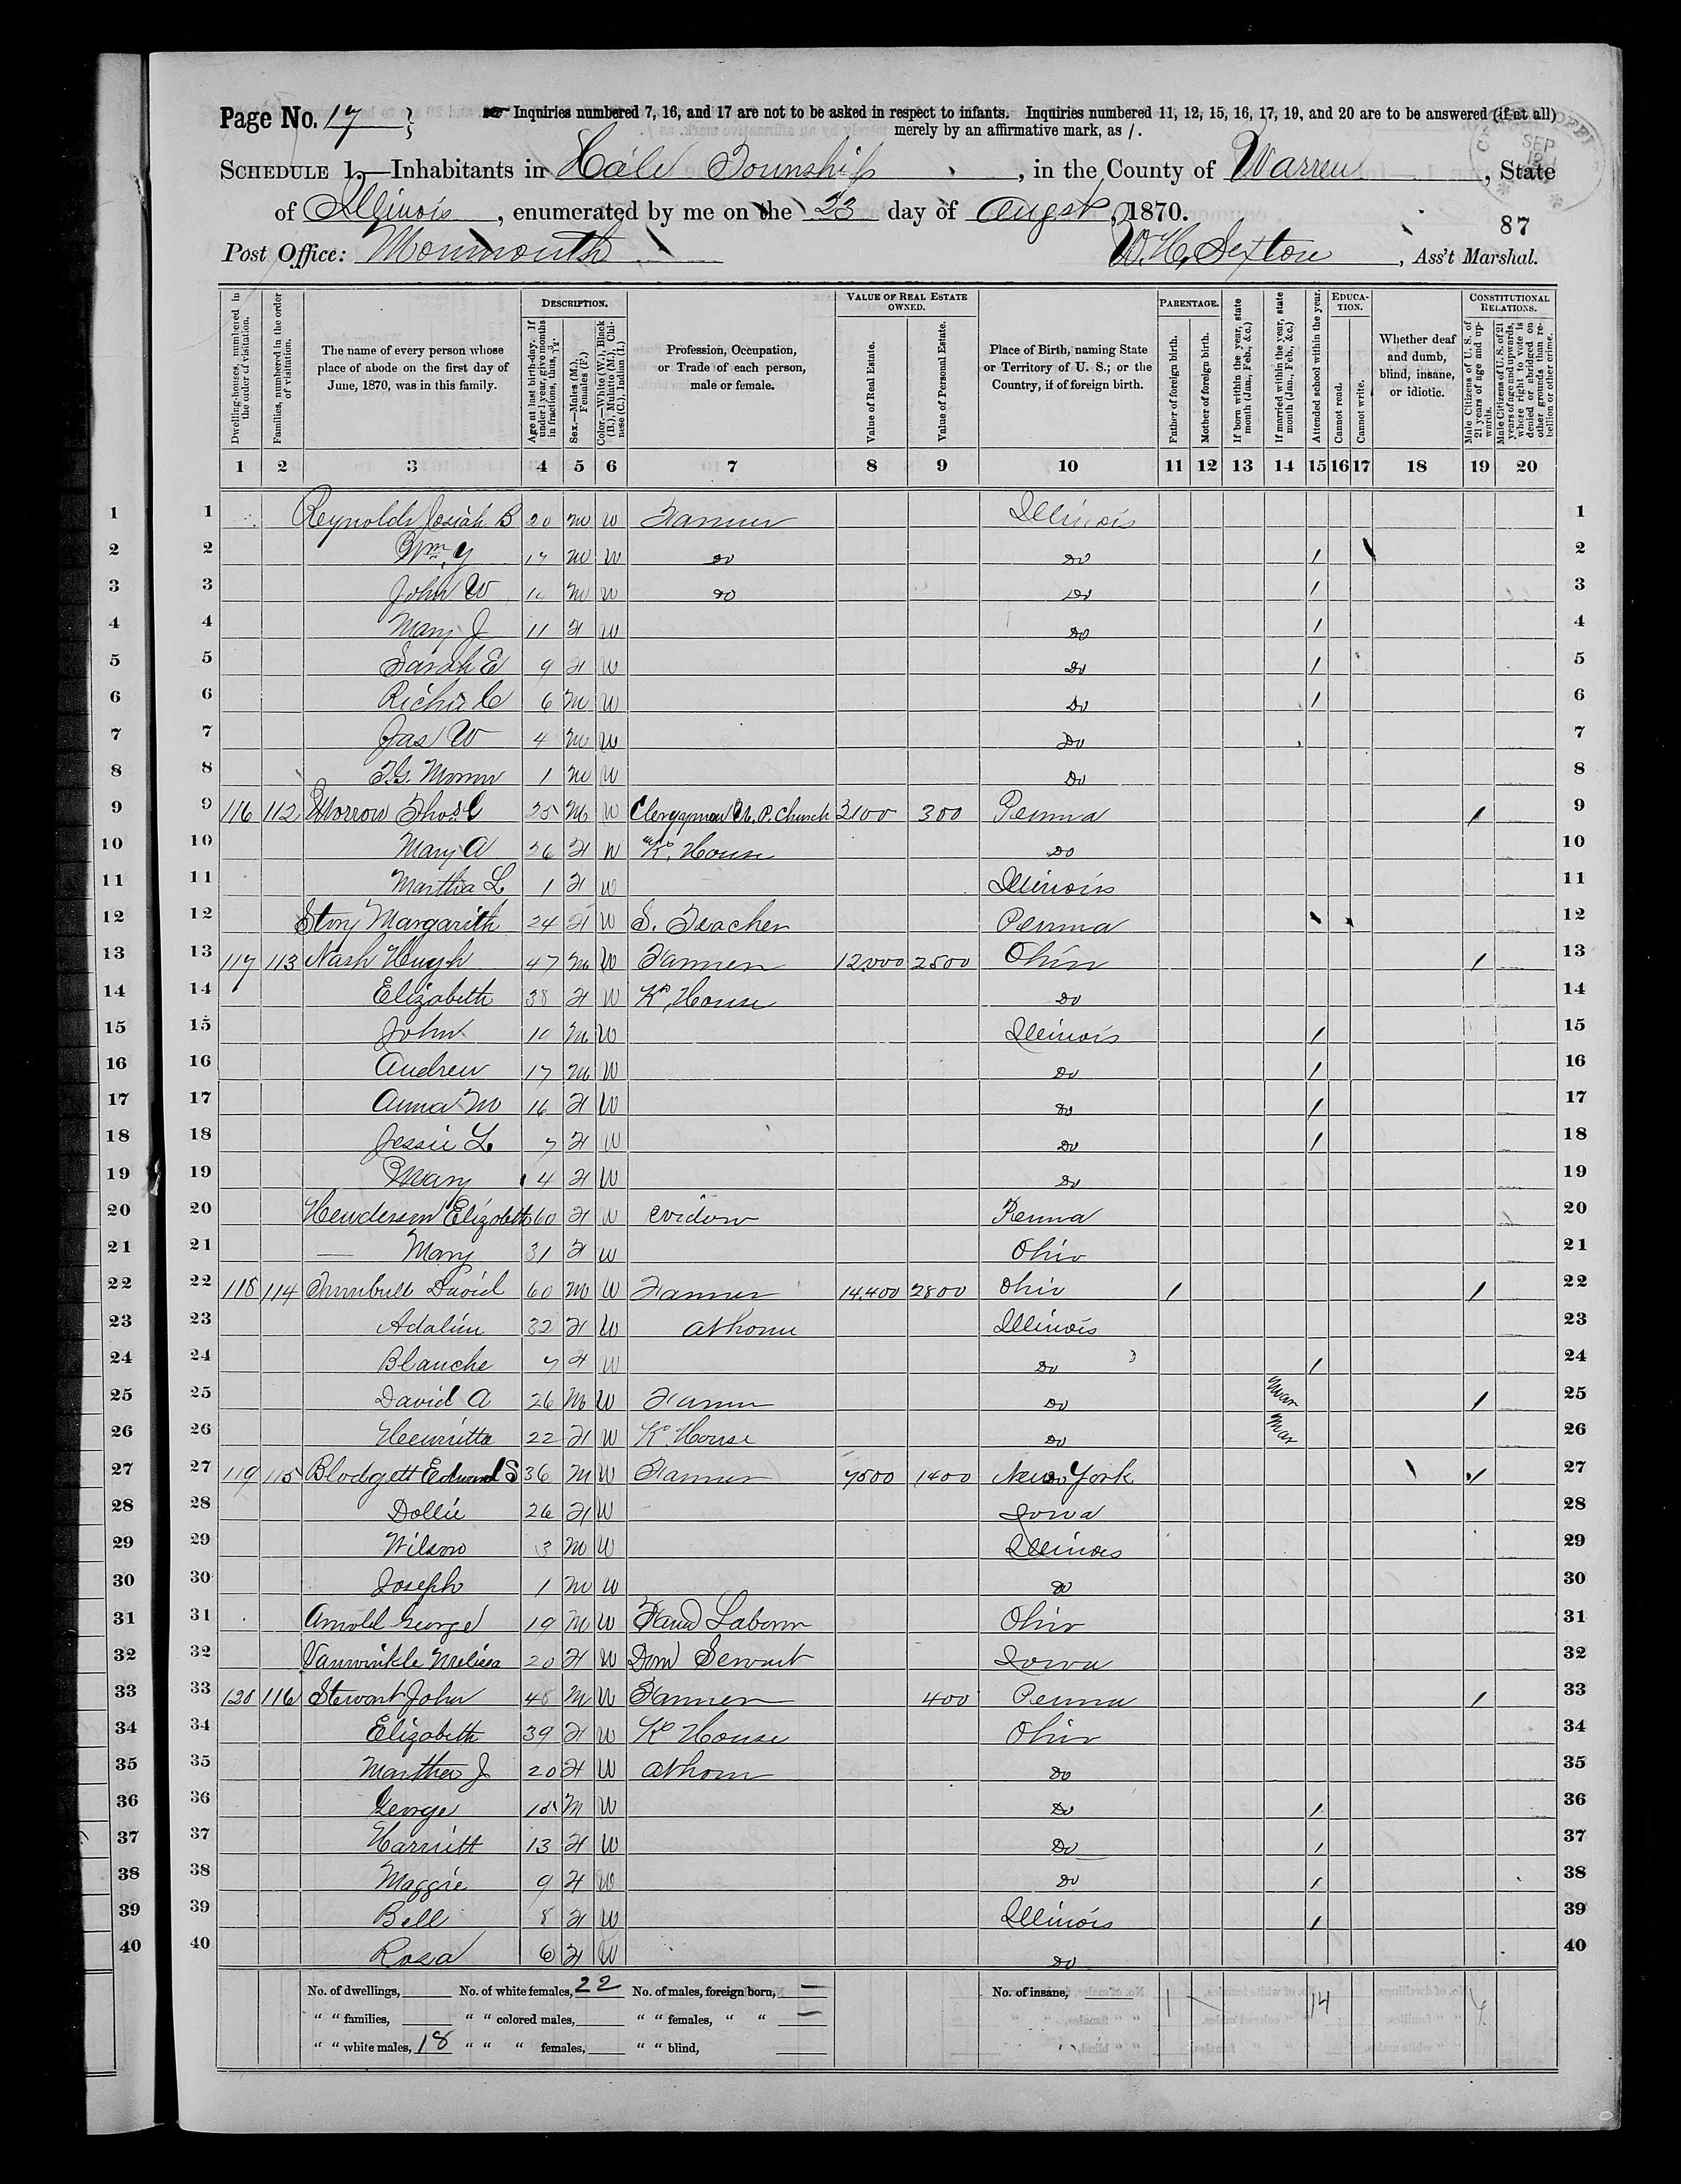 Page No. 17
Inquiries numbered 7, 16, and 17 are not to be asked in respect to infants. Inquiries numbered 11, 12, 15, 16, 17, 19, and 20 are to be answered (if at all)
merely by an affirmative mark, as /.
SCHEDULE 1.—Inhabitants in Hale Township, in the County of Warren, State
of Illinois, enumerated by me on the 23 day of Augst, 1870.
87
Post Office: Monmouth W. H. Sexton, Ass't Marshal.
Dwelling-houses, numbered in the order of visitation.
Families, numbered in the order of visitation.
The name of every person whose place of abode on the first day of June, 1870, was in this family.
DESCRIPTION.
Age at last birth-day. If under 1 year, give months in fractions, thus, 3/12.
Sex.—Males (M.), Females (F.)
Color.—White (W.), Black (B.), Mulatto (M.), Chinese (C.), Indian (I.)
Profession, Occupation, or Trade of each person, male or female.
VALUE OF REAL ESTATE OWNED.
Value of Real Estate.
Value of Personal Estate.
Place of Birth, naming State or Territory of U. S.; or the Country, if of foreign birth.
PARENTAGE.
Father of foreign birth.
Mother of foreign birth.
If born within the year, state month (Jan., Feb., &c.)
If married within the year, state month (Jan., Feb., &c.)
Attended school within the year.
EDUCATION.
Cannot read.
Cannot write.
Whether deaf and dumb, blind, insane, or idiotic.
CONSTITUTIONAL RELATIONS.
Male Citizens of U. S. of 21 years of age and upwards.
Male Citizens of U. S. of 21 years of age and upwards, whose right to vote is denied or abridged on other grounds than rebellion or other crime.
1 2 3 4 5 6 7 8 9 10 11 12 13 14 15 16 17 18 19 20
1 Reynolds Josiah B 20 M W Farmer Illinois 1
2 Wm Y 17 M W Do Do / 2
3 John W M W Do Do / 3
4 Mary J 11 F W Do / 4
5 Sarah E 9 F W Do / 5
6 Richd C 6 M W Do / 6
7 Jas W 4 M W Do 7
8 T. G. 1 M W Do 8
9 116 112 Morrow Thos C 35 M W Clergyman U. P. Church 3100 300 Penna / 9
10 Mary A 26 F W Kp House Do 10
11 Martha L 1 F W Illinois 11
12 Story Margarith 24 F W S. Teacher Penna 12
13 117 113 Nash Hugh 47 M W Farmer 12000 2500 Ohio / 13
14 Elizabeth 38 F W Kp House Do 14
15 John M W Illinois / 15
16 Andrew 17 M W Do / 16
17 Anna M 16 F W Do / 17
18 Jessie L 7 F W Do / 18
19 Mary 4 F W Do 19
20 Henderson Elizabeth 60 F W Widow Penna 20
21 — Mary 31 F W Ohio 21
22 118 114 Turnbull David 60 M W Farmer 14,400 2800 Ohio / / 22
23 Adaline 32 F W At home Illinois 23
24 Blanche 7 F W Do / 24
25 David A 26 M W Farmer Do Mar / 25
26 Henrietta 22 F W Kp House Do Mar 26
27 119 115 Blodgett Edward S 36 M W Farmer 7500 1400 New York / 27
28 Dollie 26 F W Iowa 28
29 Wilson 3 M W Illinois 29
30 Joseph 1 M W Do 30
31 Arnold George 19 M W Farm Laborer Ohio 31
32 Vanwinkle Melissa 20 F W Dom Servant Iowa 32
33 120 116 Stewart John 48 M W Farmer 400 Penna / 33
34 Elizabeth 39 F W Kp House Ohio 34
35 Martha J 20 F W At home Do 35
36 George 15 M W Do / 36
37 Harriett 13 F W Do / 37
38 Maggie 9 F W Do / 38
39 Bell 8 F W Illinois / 39
40 Rosa 6 F W Do 40
No. of dwellings, No. of white females, 22 No. of males, foreign born, — No. of insane, 1 14
" " families, " " colored males, " " females, " " —
" " white males, 18 " " " females, " " blind,